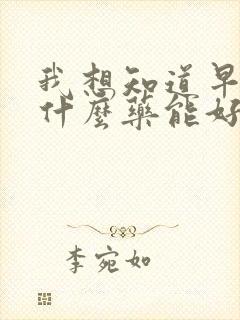 我想知道早
什麼藥能好
李宛如